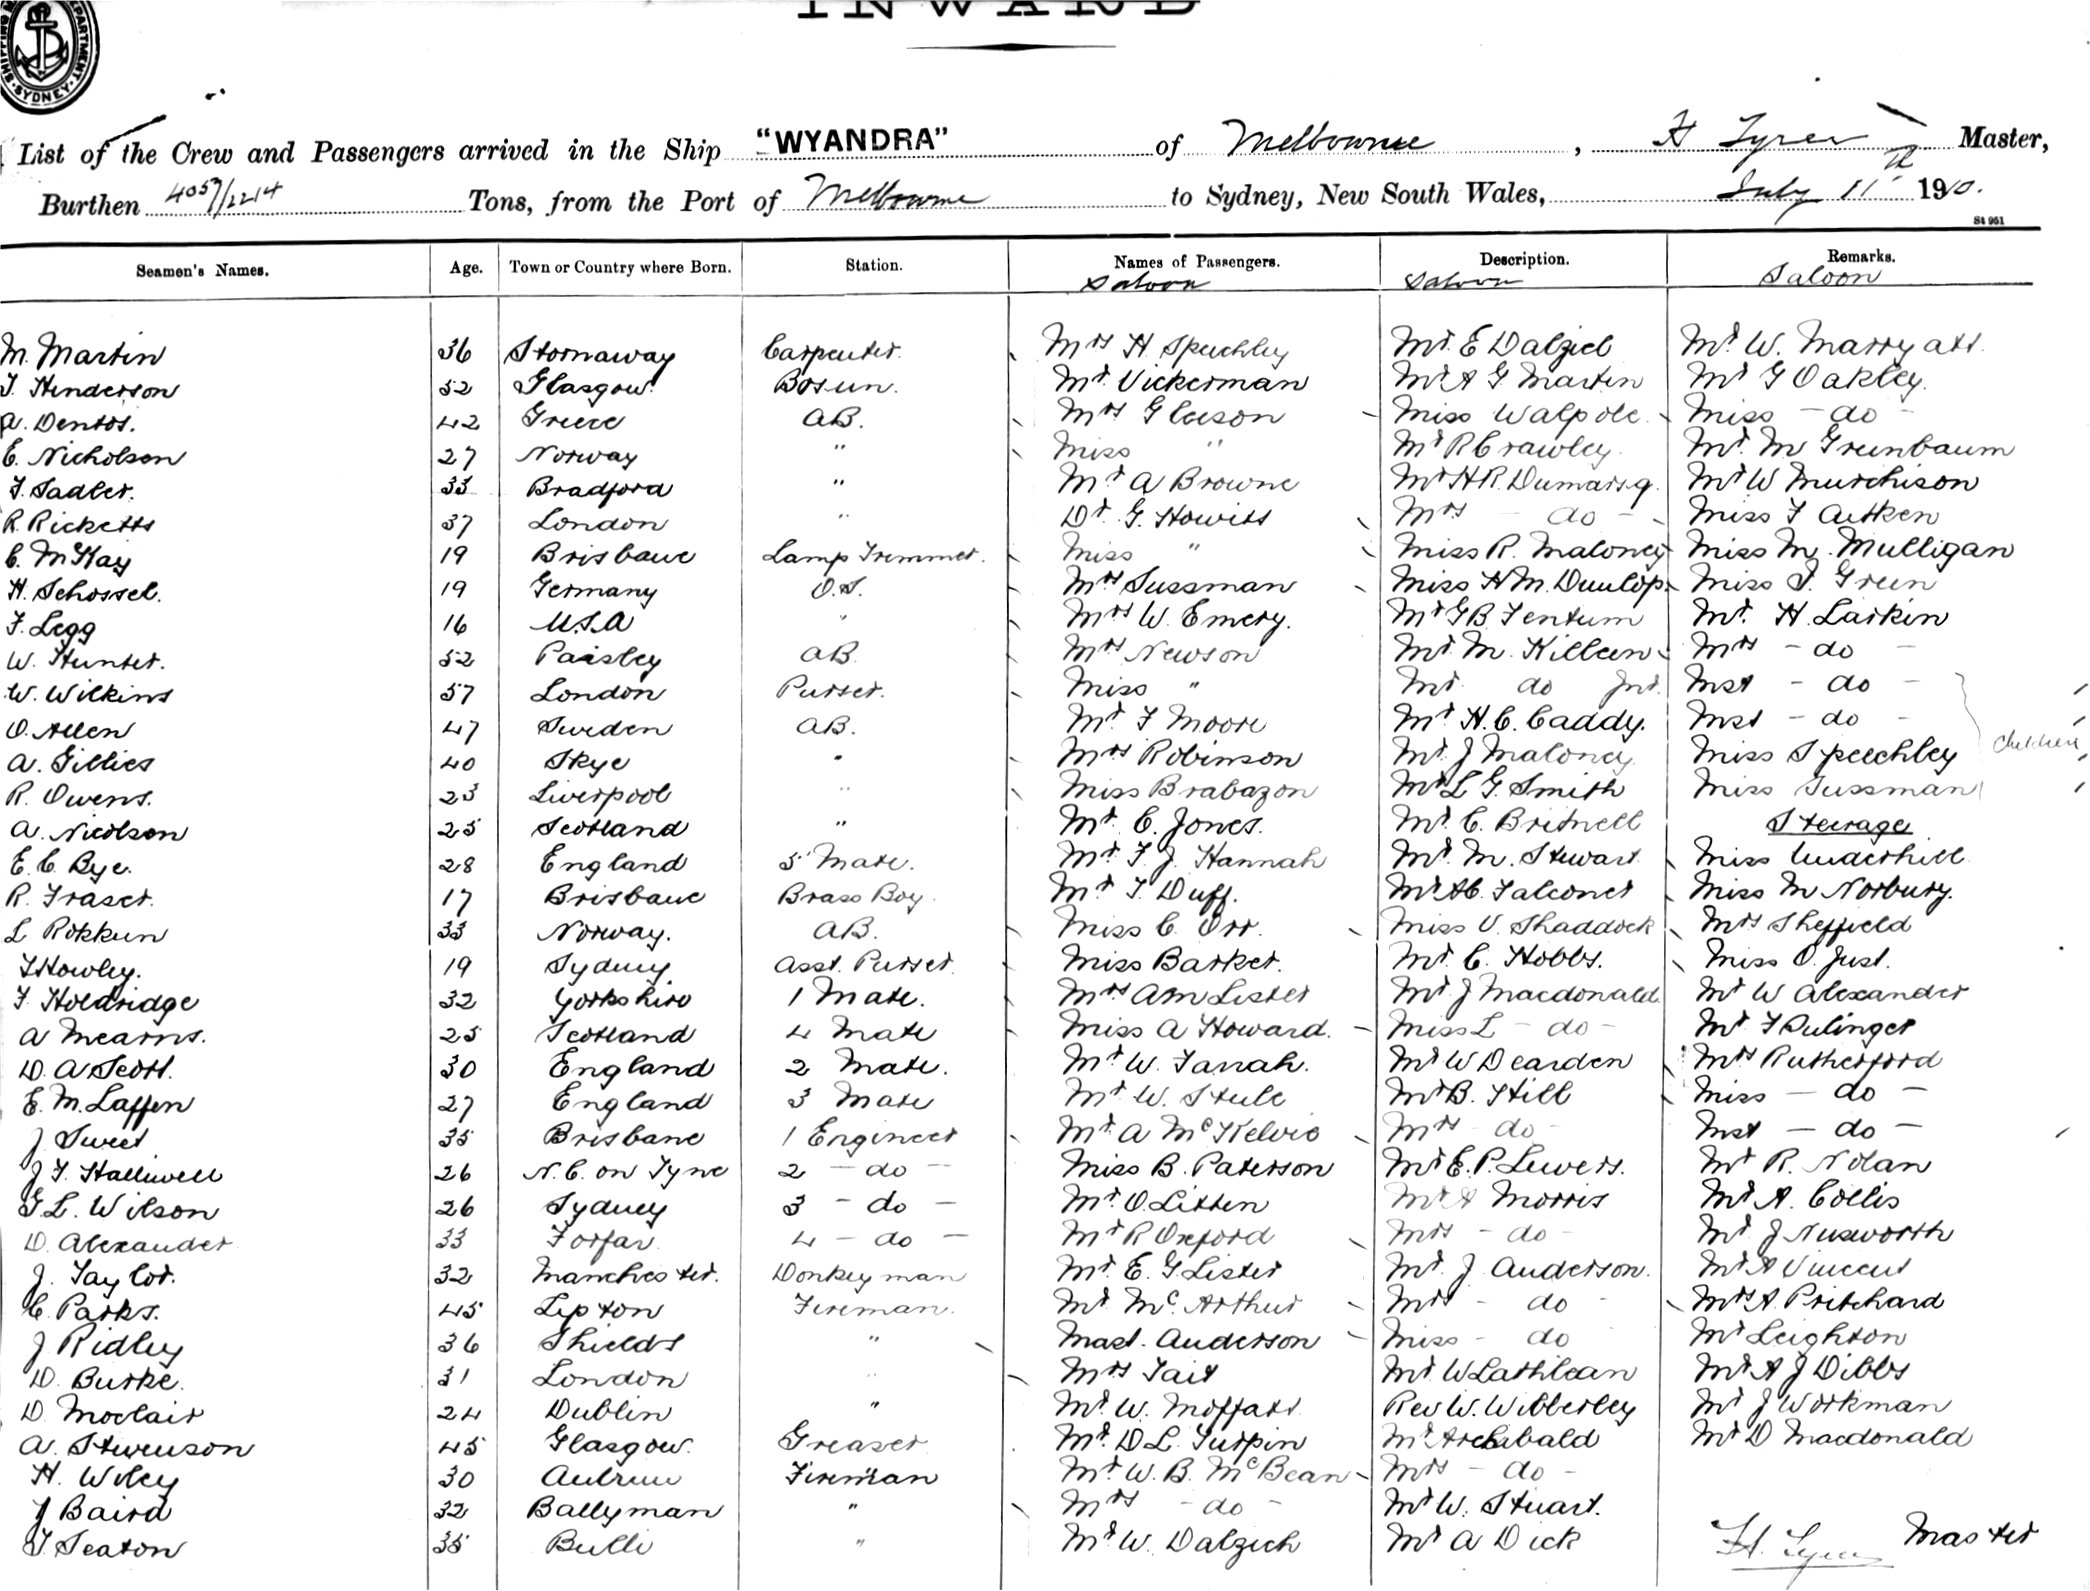 INWARD
SHIPPING DEPARTMENT. SYDNEY.
List of the Crew and Passengers arrived in the Ship "WYANDRA" of Melbourne, H Tyrer Master,
Burthen 4057/2214 Tons, from the Port of Melbourne to Sydney, New South Wales, July 11th 1910.
St 951
Seamen's Names. Age. Town or Country where Born. Station. Names of Passengers. Description. Remarks.
Saloon Saloon Saloon
M. Martin 36 Stornaway Carpenter. Mrs H Speechley Mr. E Dalziel Mr. W. Marryatt.
T. Henderson 52 Glasgow. Bosun. Mr. Vickerman Mr A G Martin Mr G Oakley.
A. Dentos. 42 Greece AB. Mrs Gleeson Miss Walpole. Miss - do -
E. Nicholson 27 Norway " Miss " Mr R Crawley Mr. M Greenbaum
F. Sadler. 33 Bradford " Mr. A Browne Mr H R. Dumarsq. Mr W Murchison
R. Ricketts 37 London " Dr. G. Howitt Mrs - do - Miss F Aitken
C. McKay 19 Brisbane Lamp Trimmer. Miss " Miss R. Maloney Miss M. Mulligan
H. Schossel. 19 Germany O.S. Mrs Sussman Miss H M. Dunlop. Miss S. Green
F. Legg 16 U.S.A " Mrs W. Emery. Mr G B. Fentum Mr. H. Larkin
W. Hunter. 52 Paisley AB Mrs Newson Mr. M. Killeen Mrs - do -
W. Wilkins 57 London Purser. Miss " Mr. do Jnr. Mst - do -
O. Allen 47 Sweden AB. Mr. F Moore Mr. H. C. Caddy. Mst - do - children
A. Gillies 40 Skye " Mrs Robinson Mr. J Maloney Miss Speechley
R. Owens. 23 Liverpool " Miss Brabazon Mr L G. Smith Miss Sussman
A. Nicolson 25 Scotland " Mr. C. Jones. Mr. C. Britnell Steerage
E. C. Bye. 28 England 5 Mate. Mr. F. J. Hannah Mr. M. Stewart Miss Underhill
R. Fraser. 17 Brisbane Brass Boy. Mr. T. Duff. Mr A C. Falconer Miss M Norbury.
L Rokkun 33 Norway. AB. Miss C. Orr. Miss V. Shaddock Mrs Sheffield
F Howley. 19 Sydney Asst. Purser. Miss Barker. Mr. C. Hobbs. Miss O. Just.
F. Holdridge 32 Yorkshire 1 Mate. Mrs A M Lister Mr J Macdonald. Mr W Alexander
A Mearns. 25 Scotland 4 Mate Miss A Howard. Miss L - do - Mr. F Bulinger
D. A Scott. 30 England 2 Mate. Mr W. Tannah. Mr W Dearden Mrs Rutherford
E. M. Laffin 27 England 3 Mate Mr. W. Steele Mr B. Hill Miss - do -
J Sweet 35 Brisbane 1 Engineer Mr. A McKelvie Mrs - do - Mst - do -
J. F. Halliwell 26 N. C. on Tyne 2 - do - Miss B. Paterson Mr E. P. Lewers. Mr R. Nolan
G L. Wilson 26 Sydney 3 - do - Mr. O. Litten Mr A Morris Mr A. Collis
D. Alexander 33 Forfar 4 - do - Mr R Oxford Mrs - do - Mr. J
J. Taylor. 32 Manchester. Donkeyman Mr. E. G. Lister Mr. J Anderson. Mr A Vincent
C. Parks. 45 Lepton Fireman. Mr. McArthur Mrs - do - Mrs A. Pritchard
J Ridley 36 Shields " Mast. Anderson Miss - do Mr Leighton
D. Burke. 31 London " Mrs Tait Mr. W Lathlean Mr A J Dibbs
D Moclair 24 Dublin " Mr. W. Moffatt Rev W. Wibberley Mr J Workman
A. Stevenson 45 Glasgow. Greaser Mr. D L. Turpin Mr Archibald Mr D Macdonald
H. Wiley 30 Antrim Fireman Mr. W. B. McBean Mrs - do -
J Baird 32 Ballyman " Mrs - do - Mr W. Stuart.
T. Seaton 35 Bulli " Mr. W. Dalziell Mr A Dick H. Tyrer Master